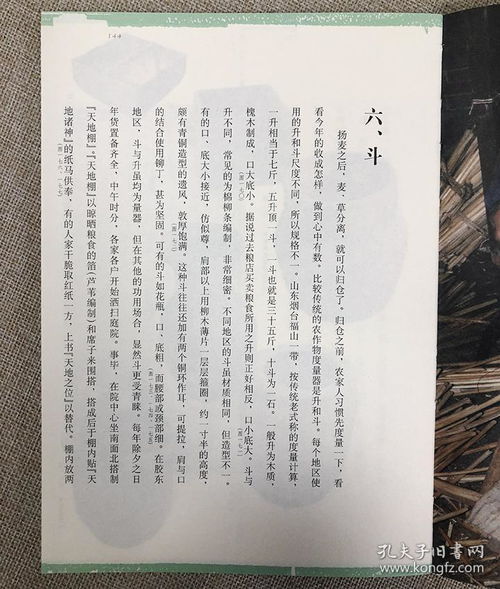 144
六、斗
扬麦之后，麦、草分离，就可以归仓了。归仓之前，农家人习惯先度量一下，看
看今年的收成怎样，做到心中有数，比较传统的农作物度量器是升和斗。每个地区使
用的升和斗尺度不同，所以规格不一。山东烟台福山一带，按传统老式称的度量计算，
一升相当于七斤，五升顶一斗，一斗也就是三十五斤，十斗为一石。一般升为木质，
槐木制成，口大底小。据说过去粮店买卖粮食所用之升则正好相反，口小底大。斗与
升不同，常见的为棉柳条编制，非常细密。不同地区的斗虽材质相同，但造型不一。
有的口、底大小接近，仿似尊，肩部以上用柳木薄片一层层箍圈，约一寸半的高度，
颇有青铜造型的遗风，敦厚饱满。这种斗往往还加有两个铜环作耳，可提拉，肩与口
的结合使用铆丁，甚为坚固。可有的斗如花瓶，口、底粗，而腰部或颈部细。在胶东
地区，斗与升虽均为量器，但在其他的功用场合，显然斗更受青睐。每年除夕之日
年货置备齐全，中午时分，各家各户开始洒扫庭院。事毕，在院中心坐南面北搭制
『天地棚』。『天地棚』以晾晒粮食的箔(芦苇编制)和席子来围搭，搭成后于棚内贴『天
地诸神』的纸马供奉，有的人家干脆取红纸一方，上书『天地之位』以替代。棚内放两
孔夫子旧书网
kongfz.com